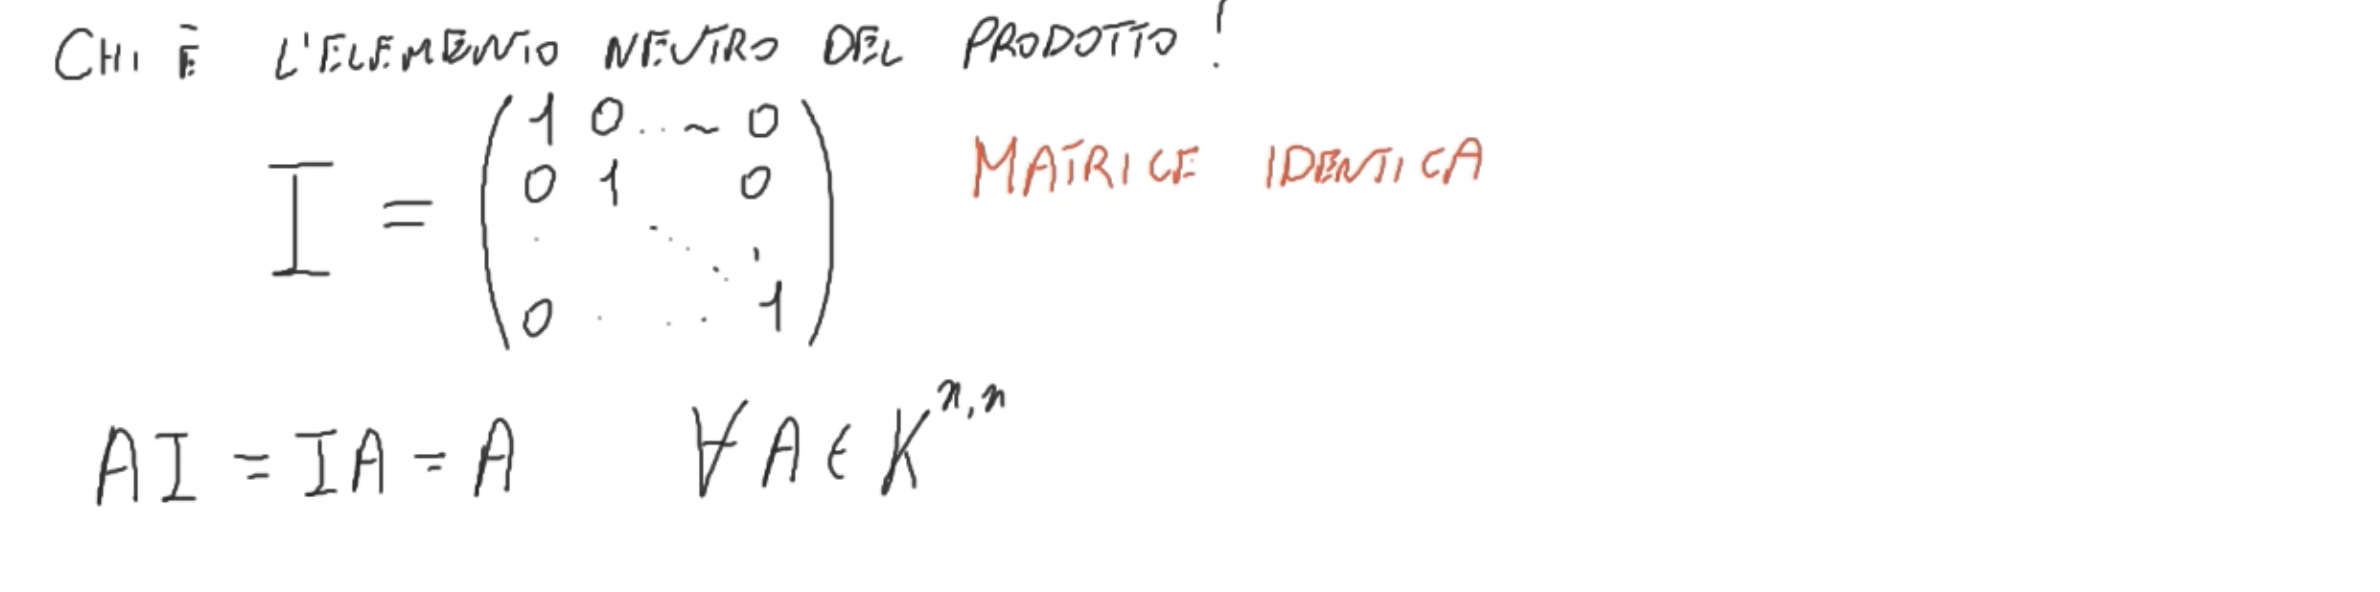 CHI È L'ELEMENTO NEUTRO DEL PRODOTTO?
I = ( 1 0 . . ~ 0
0 1 0
. . . . . .
0 . . . 1 )
MATRICE IDENTICA
AI = IA = A ∀ A ∈ K^{n,n}